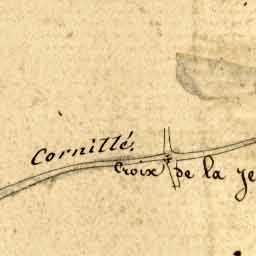 Cornillé.
Croix de la